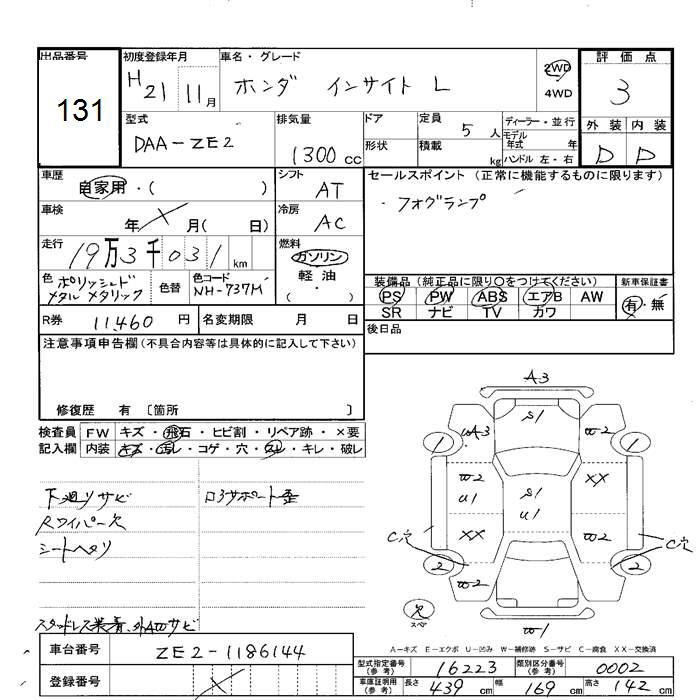 出品番号 131
初度登録年月 H21 11月
車名・グレード ホンダ インサイト L
2WD
4WD
評価点 3
外装 内装
D D
型式 DAA-ZE2
排気量 1300cc
ドア
形状
定員 5人
積載 kg
ディーラー・並行
モデル年式 年
ハンドル 左・右
車歴 自家用・( )
シフト AT
セールスポイント (正常に機能するものに限ります)
・フォグランプ
車検 年 月( 日)
冷房 AC
走行 19万3千031km
燃料 ガソリン
軽油
( ・ )
色 ポリッシュド
メタル メタリック
色替
色コード NH-737M
装備品 (純正品に限り○をつけてください)
PS PW ABS エアB AW
SR ナビ TV カワ
新車保証書
有・無
R券 11,460円
名変期限 月 日
後日品
注意事項申告欄(不具合内容等は具体的に記入して下さい)
修復歴 有 〔箇所 〕
検査員 FW キズ・飛石・ヒビ割・リペア跡・×要
記入欄 内装 キズ・汚れ・コゲ・穴・スレ・キレ・破レ
下廻りサビ
ロアサポート歪
Rワイパー欠
シートヘタリ
スタッドレス装着、外AWサビ
A3
S1
A3
W2
1
1
W2
U1
XX
S1
U1
XX
W2
C穴
C穴
2
2
W2
W2
欠
スペア
W1
A-キズ E-エクボ U-凹み W-補修跡 S-サビ C-腐食 XX-交換済
車台番号 ZE2-1186144
登録番号
型式指定番号(参考) 16223
類別区分番号(参考) 0002
車庫証明用(参考) 長さ 439cm 幅 169cm 高さ 142cm